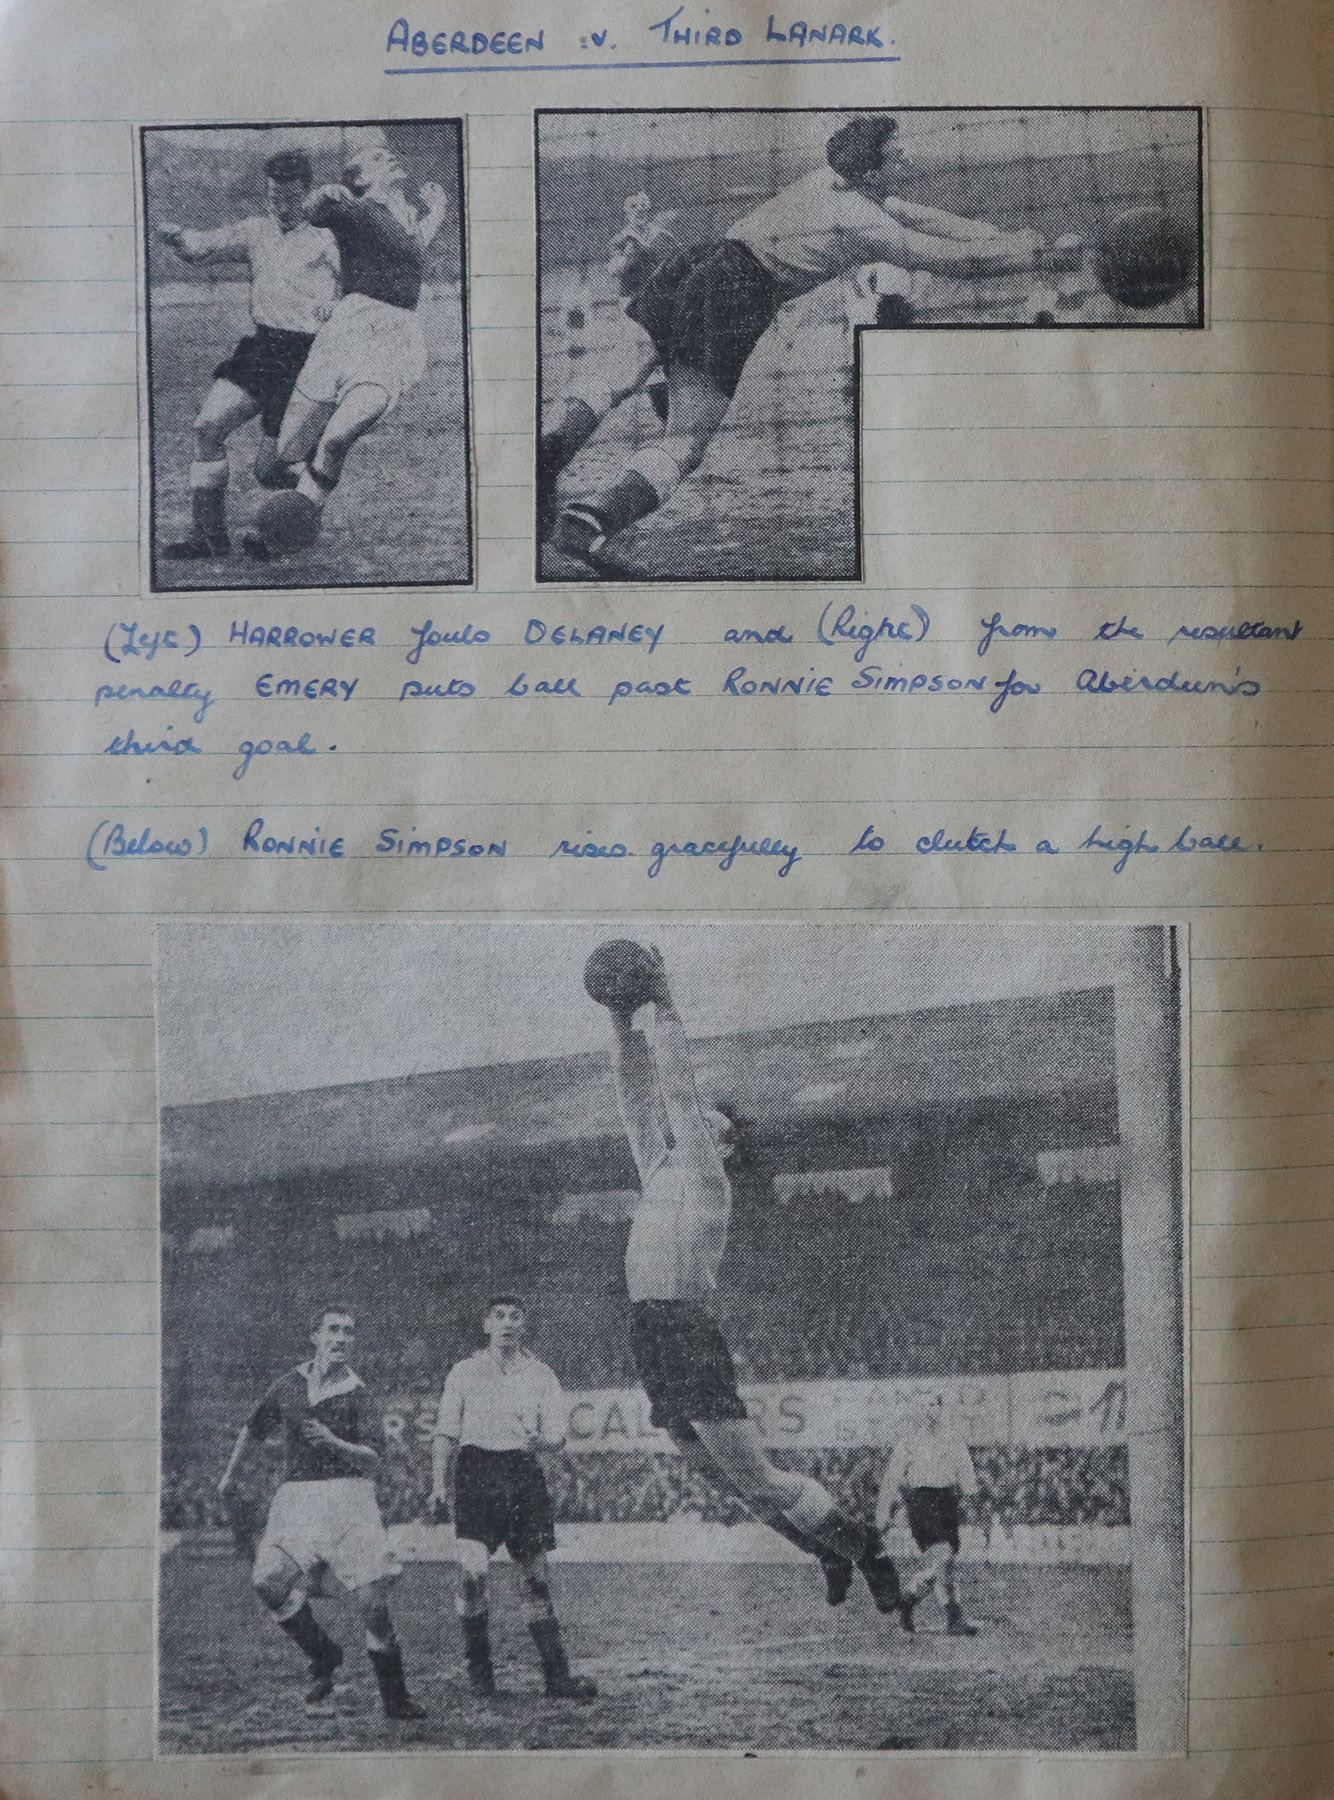 ABERDEEN .v. THIRD LANARK.
(Left) HARROWER fouls DELANEY and (Right) from the resultant
penalty EMERY puts ball past RONNIE SIMPSON for Aberdeen's
third goal.
(Below) RONNIE SIMPSON rises gracefully to clutch a high ball.
RS CAL ERS